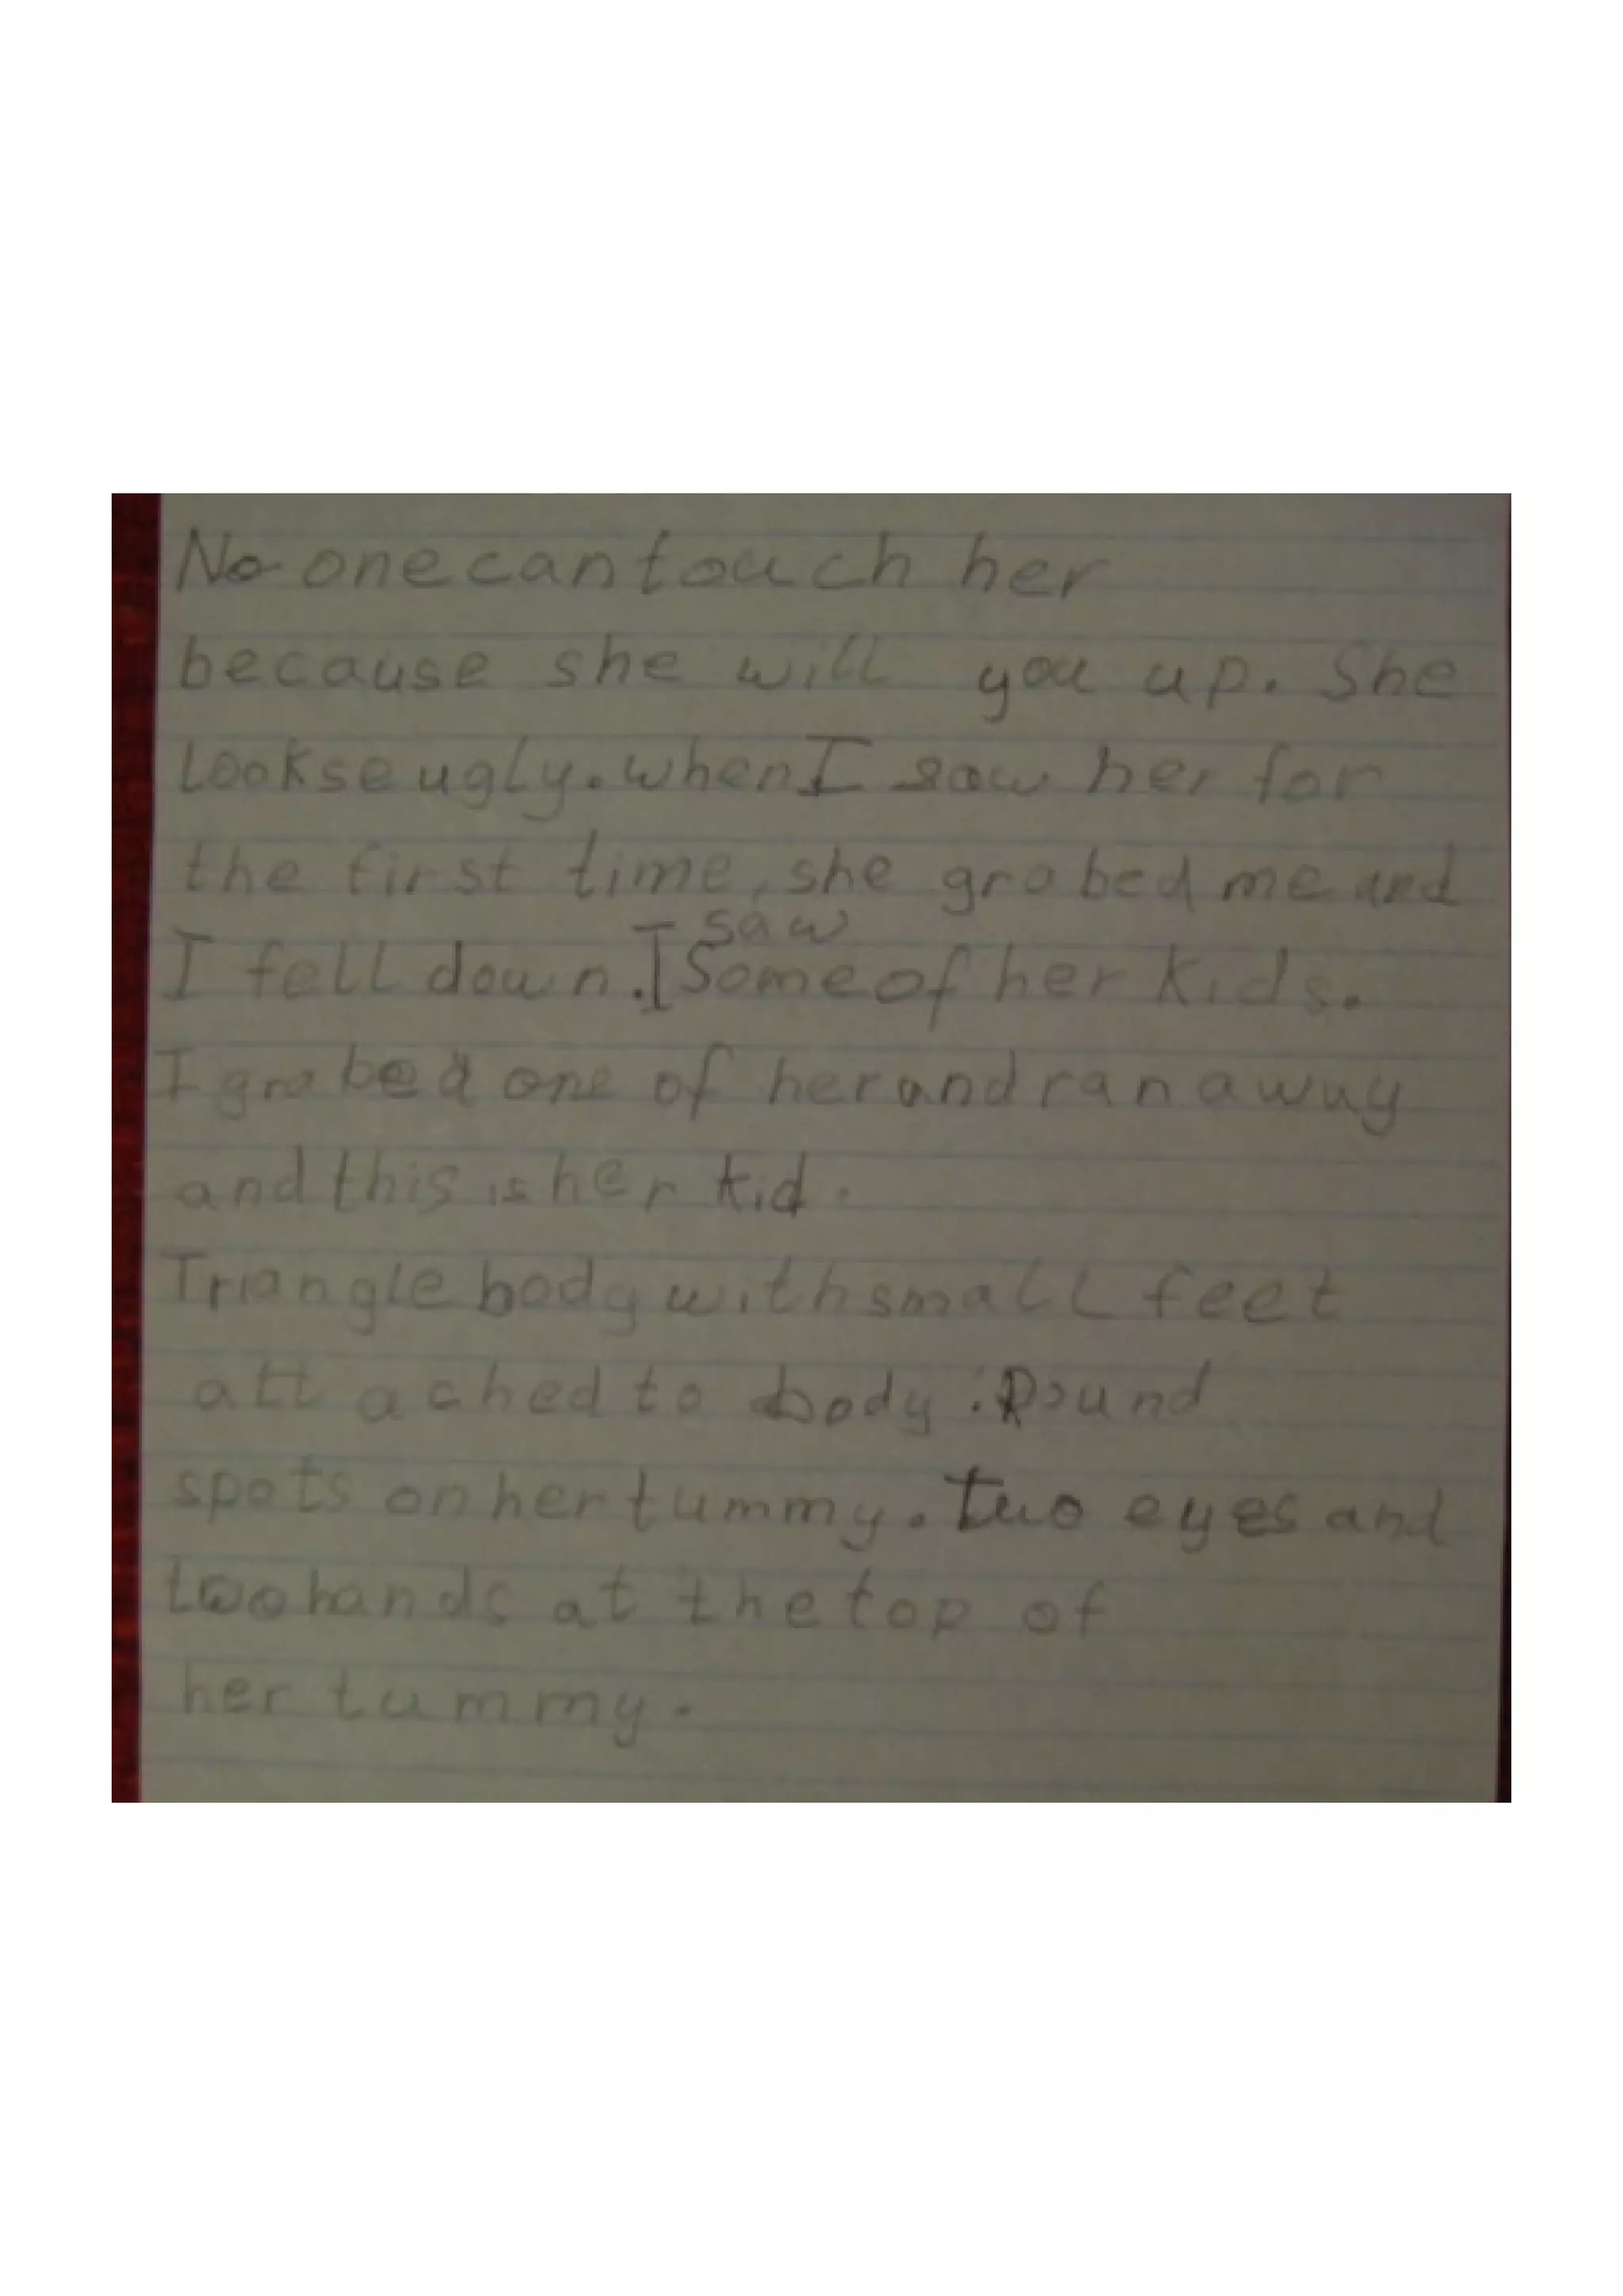 No one can touch her
because she will you up. She
Lookse ugly. when I saw her for
the first time, she grabed me and
saw
I fell down. I Some of her kids.
I grabed one of her and ran away
and this is her kid.
Triangle body with small feet
attached to body. Round
spots on her tummy. two eyes and
two hands at the top of
her tummy.